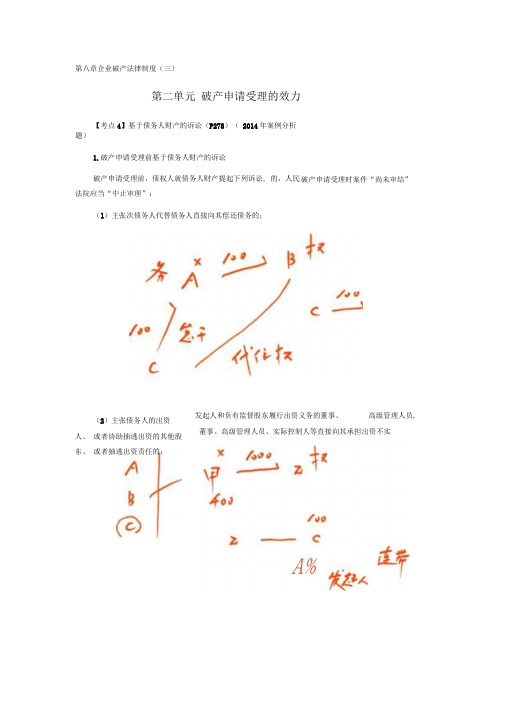 第八章企业破产法律制度（三）
第二单元 破产申请受理的效力
【考点4】基于债务人财产的诉讼（P278）（ 2014年案例分析
题）
1.破产申请受理前基于债务人财产的诉讼
破产申请受理前，债权人就债务人财产提起下列诉讼. 的，人民破产申请受理时案件“尚未审结”
法院应当“中止审理”：
（1）主张次债务人代替债务人直接向其偿还债务的;
务 A × 100 B 权
100
C 100
C
代位权
（2）主张债务人的出资
人、 或者协助抽逃出资的其他股
东、 或者抽逃出资责任的;
发起人和负有监督股东履行出资义务的董事、 高级管理人员,
董事、高级管理人员、实际控制人等直接向其承担出资不实
A
B
C
× 1000
甲 Z 权
400
100
Z — C
A%
发起人
连带